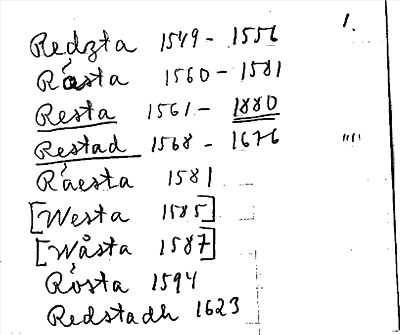 1.
Redzta 1549 - 1556
Råsta 1560 - 1581
Resta 1561 - 1880
Restad 1568 - 1676 """
Råesta 1581
[Westa 1585]
[Wåsta 1587]
Rösta 1594
Redstadh 1623